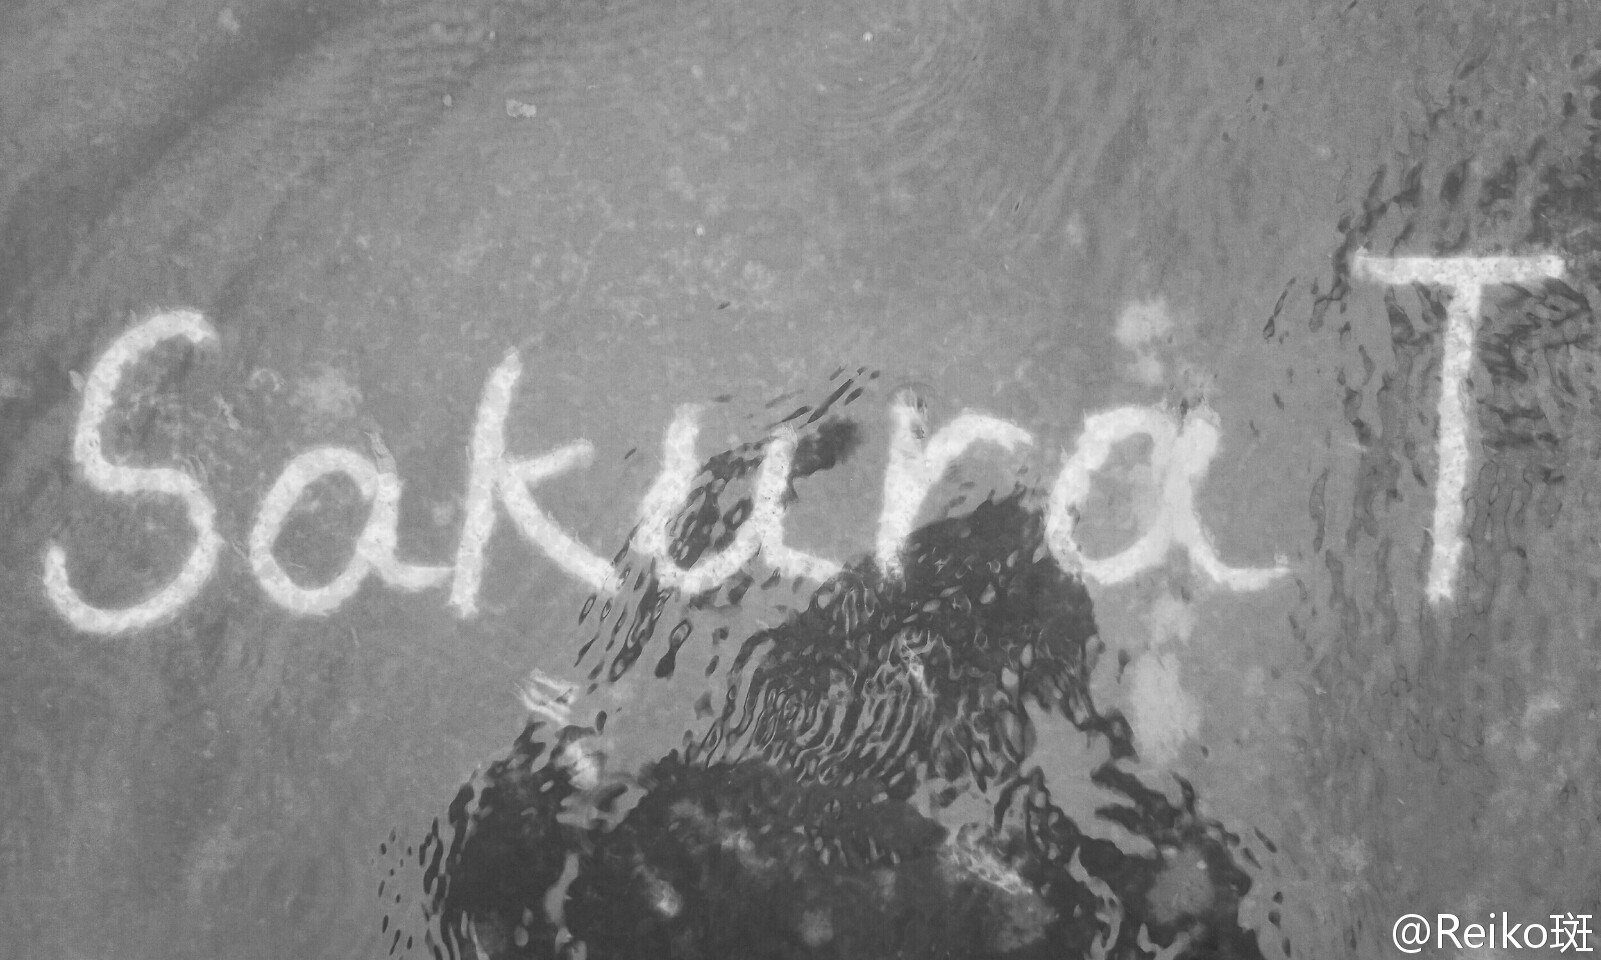 Sakura T
@Reiko斑